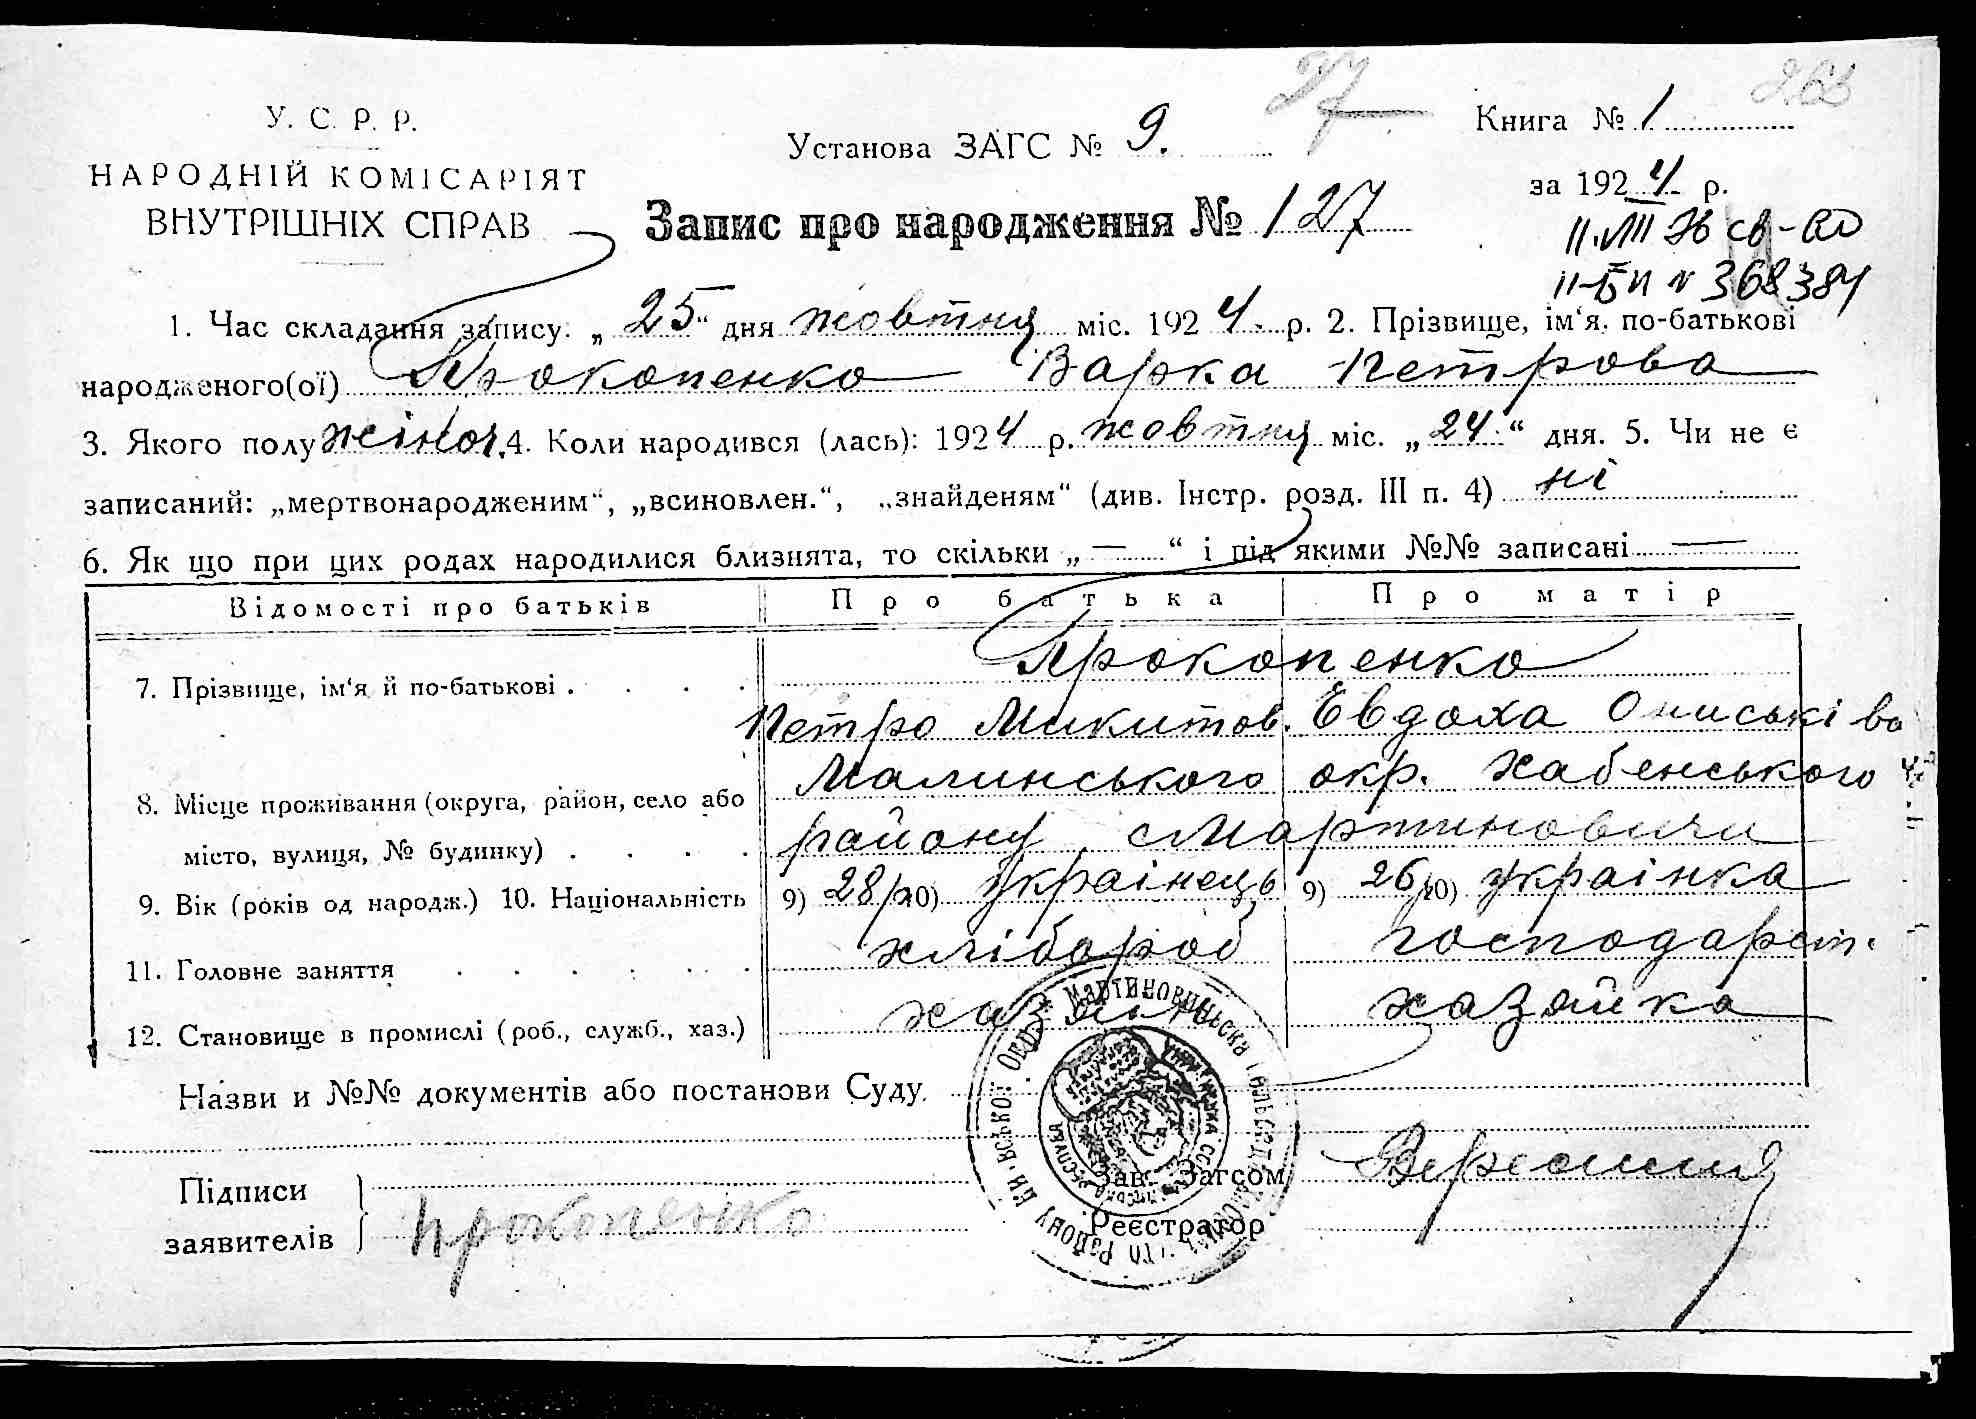 У. С. Р. Р.
НАРОДНІЙ КОМІСАРІЯТ
ВНУТРІШНІХ СПРАВ
Установа ЗАГС № 9.
37
Книга № 1
за 1924 р.
Запис про народження № 127
11.VIII св-во
II-БП № 368384
1. Час складання запису: „25“ дня жовтня міс. 1924. р. 2. Прізвище, ім‘я, по-батькові
народженого(ої) Прокопенко Варка Петрова
3. Якого полу жіноч. 4. Коли народився (лась): 1924 р. жовтня міс. „24“ дня. 5. Чи не є
записаний: „мертвонародженим“, „всиновлен.“, „знайденям“ (див. Інстр. розд. III п. 4) ні
6. Як що при цих родах народилися близнята, то скільки „—“ і під якими №№ записані —
Відомості про батьків Про батька Про матір
Прокопенко
7. Прізвище, ім‘я й по-батькові . . . .
Петро Микитов. Евдоха Ониськіва
Малинського окр. Хабенського
8. Місце проживання (округа, район, село або
місто, вулиця, № будинку) . . . .
району с Мартиновичи
9. Вік (років од народж.) 10. Національність 9) 28 р 10) українець 9) 26 р 10) українка
11. Головне заняття . . . . . . хлібороб господарст.
12. Становище в промислі (роб., служб., хаз.) хазяїн хазяйка
Назви и №№ документів або постанови Суду.
Підписи
заявителів
Прокопенко
Зав. Загсом
Реєстратор